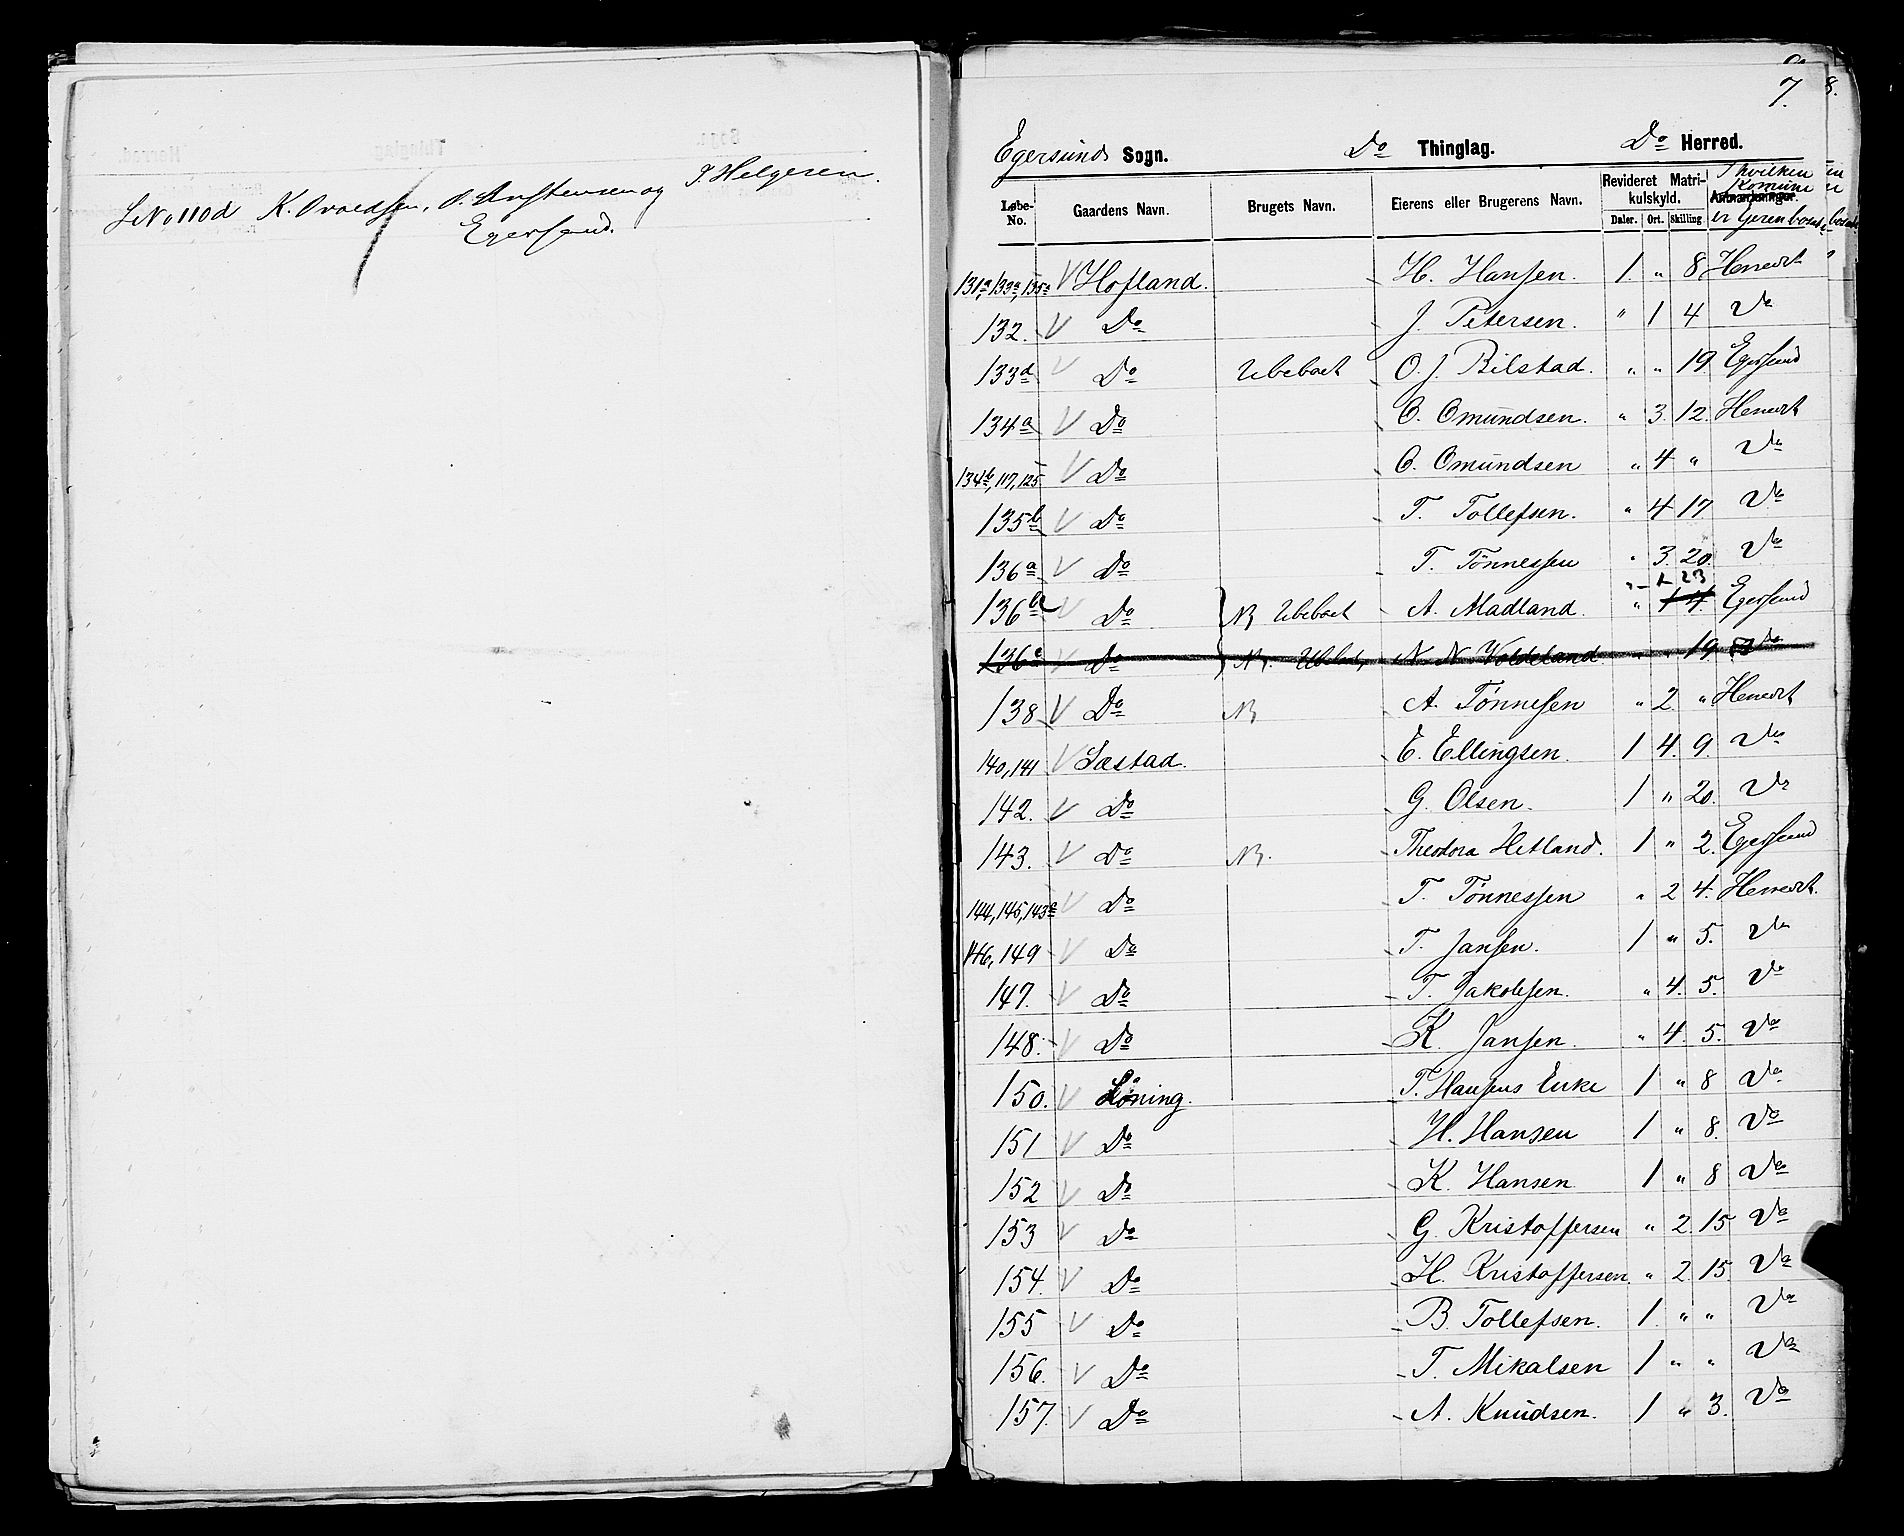 L No 110d K. Ovaldsen, O. Anstensen og T. Helgesen.
Egersund.
7. 8.
Egersund Sogn. Do Thinglag. Do Herred.
Løbe-No. Gaardens Navn. Brugets Navn. Eierens eller Brugerens Navn. Revideret Matrikulskyld. Daler. Ort. Skilling Anmærkninger. I hvilken Komune er Eieren bosat
131a, 133a, 135a V Hofland. H. Hansen. 1. " 8 Herredt
132. V Do J. Petersen. " 1 4 Do
133d V Do Ubeboet O. J. Bilstad. " " 19 Egersund
134a V Do O. Omundsen. " 3. 12. Herredt
134b, 117, 125 V Do O. Omundsen " 4 " Do
135b V Do T. Tollefsen. " 4 17 Do
136a V Do T. Tönnessen " 3. 20. Do
" 1 23
136b V Do NB Ubeboet A. Madland. " 1 4. Egersund
136c V Do NB. Ubeboet N. N. Voldeland " " 19 Do
138 V Do NB A. Tønnesen " 2 " Herredt
140, 141 V Sæstad. E. Ellingsen. 1 4. 9. Do
142. V Do G. Olsen. 1 " 20. Do
143. V Do NB. Theodora Hetland. 1 " 2. Egersund
144, 145, 143a V Do T. Tönnessen " 2 4. Herredt.
146, 149 V Do T. Jansen. 1 " 5. Do
147. V Do T. Jakobsen. " 4. 5. Do
148. V Do K. Jansen. " 4. 5. Do
150. V Löning. T. Hansens Enke 1 " 8 Do
151 V Do H. Hansen 1 " 8. Do
152 V Do K. Hansen 1 " 8 Do
153 V Do G. Kristoffersen " 2. 15 Do
154. V Do H. Kristoffersen. " 2 15 Do
155 V Do B. Tollefsen. 1. " " Do
156. V Do T. Mikalsen 1 " " Do
157. V Do A. Knudsen. 1 " 3. Do